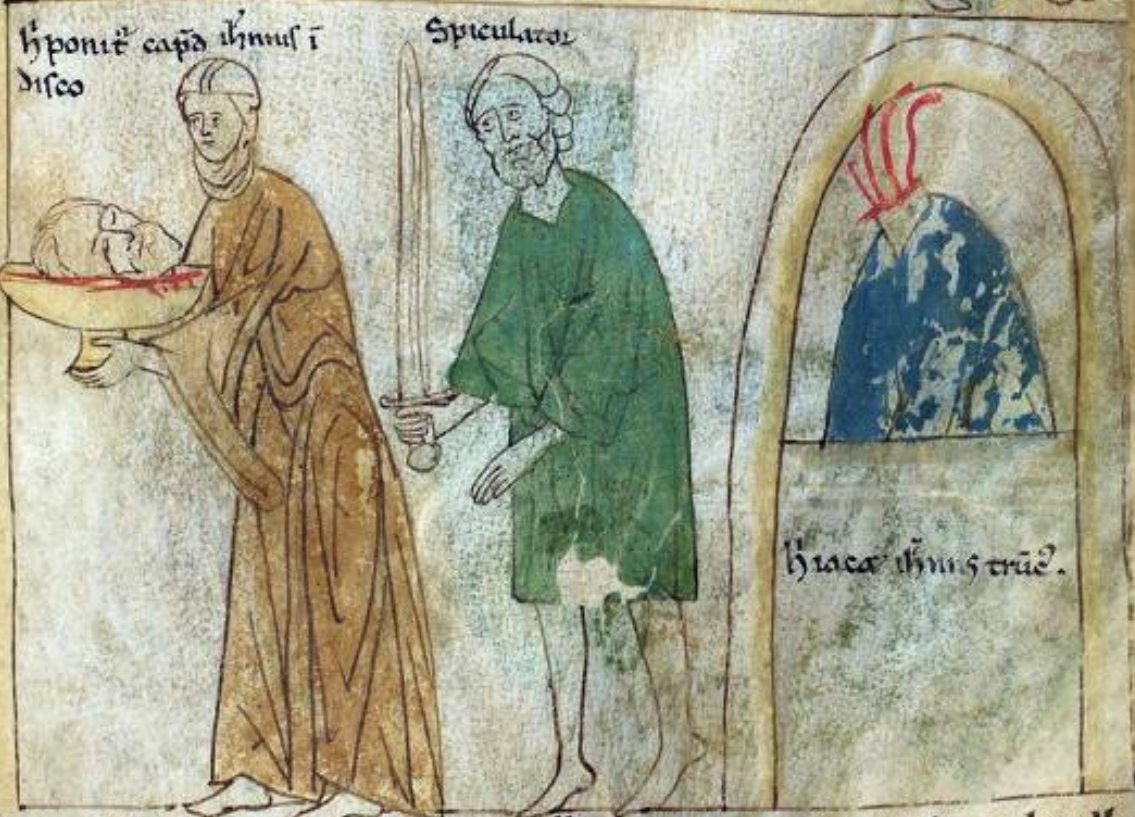 h̄ ponit᷑ capđ ih̄nnis ī
disco
Spiculator
h̄ iacet ih̄nnis trūc᷑.